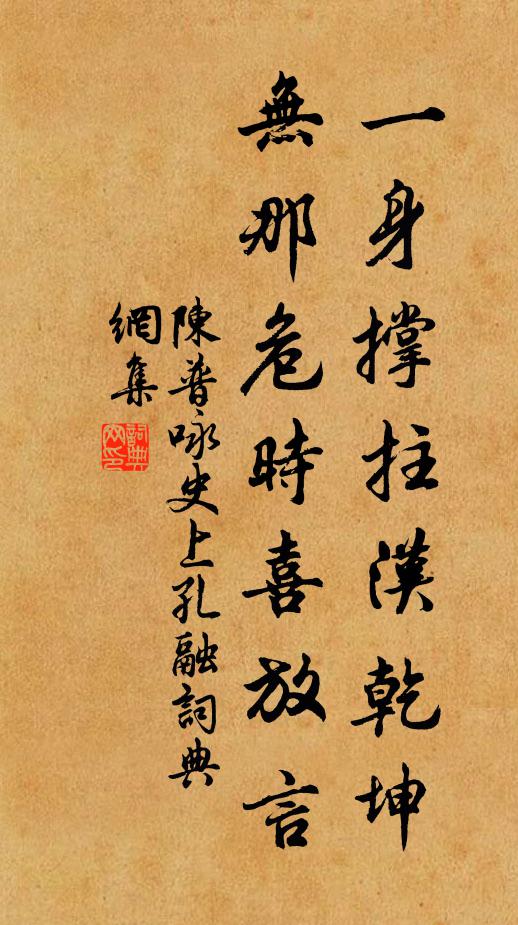 一身撐拄漢乾坤
無那危時喜放言
陳普咏史上孔融詞典
網集
詞典
网印